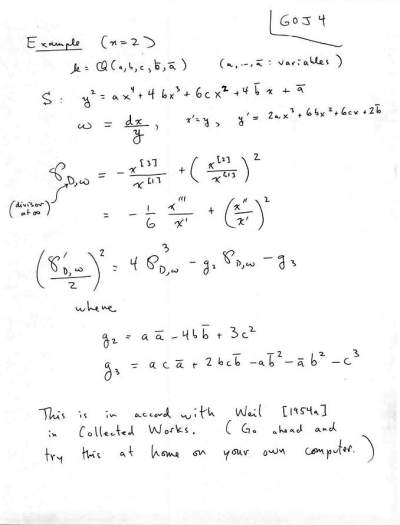 GOJ 4
Example (n=2)
k = Q(a,b,c,b̄,ā) (a,-,ā : variables)
S: y² = ax⁴ + 4bx³ + 6cx² + 4b̄x + ā
ω = dx/y, x' = y, y' = 2ax³ + 6bx² + 6cx + 2b̄
℘_{D,ω} = - x^{[3]}/x^{[1]} + (x^{[2]}/x^{[1]})²
(divisor at ∞)
= - 1/6 x'''/x' + (x''/x')²
(℘'_{D,ω}/2)² = 4℘³_{D,ω} - g₂ ℘_{D,ω} - g₃
where
g₂ = aā - 4bb̄ + 3c²
g₃ = acā + 2bcb̄ - ab̄² - āb² - c³
This is in accord with Weil [1954a]
in Collected Works. (Go ahead and
try this at home on your own computer.)